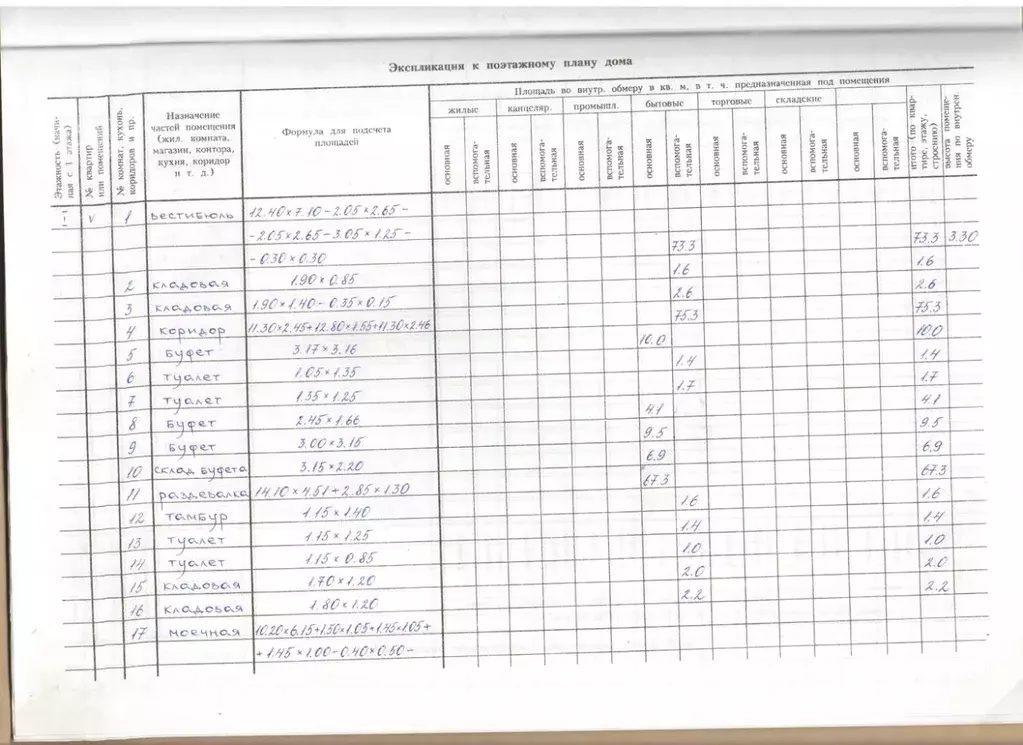 Экспликация к поэтажному плану дома
Этажность (начиная с 1 этажа)
№ квартир или помещений
№ комнат, кухонь, коридоров и пр.
Назначение частей помещения (жил. комната, магазин, контора, кухня, коридор и т. д.)
Формула для подсчета площадей
Площадь по внутр. обмеру в кв. м, в т. ч. предназначенная под помещения
жилые канцеляр. промышл. бытовые торговые складские
основная вспомогательная основная вспомогательная основная вспомогательная основная вспомогательная основная вспомогательная основная вспомогательная основная вспомогательная
итого (по квартире, этажу, строению)
высота помещения по внутрен. обмеру
V 1 вестибюль 12.40×7.10-2.05×2.65-
-2.05×2.65-3.05×1.25- 73.3 73.3 3.30
-0.30×0.30
2 кладовая 1.90×0.85 1.6 1.6
3 кладовая 1.90×1.40-0.35×0.15 2.6 2.6
4 коридор 11.30×2.45+12.80×1.55+11.30×2.46 75.3 75.3
5 буфет 3.17×3.16 10.0 10.0
6 туалет 1.05×1.35 1.4 1.4
7 туалет 1.35×1.25 1.7 1.7
8 буфет 2.45×1.66 4.1 4.1
9 буфет 3.00×3.15 9.5 9.5
10 склад буфета 3.15×2.20 6.9 6.9
11 раздевалка 14.10×4.51+2.85×1.30 67.3 67.3
12 тамбур 1.15×1.40 1.6 1.6
13 туалет 1.15×1.25 1.4 1.4
14 туалет 1.15×0.85 1.0 1.0
15 кладовая 1.70×1.20 2.0 2.0
16 кладовая 1.80×1.20 2.2 2.2
17 моечная 10.20×6.15+1.50×1.05+1.45×1.05+
+1.45×1.00-0.40×0.50-